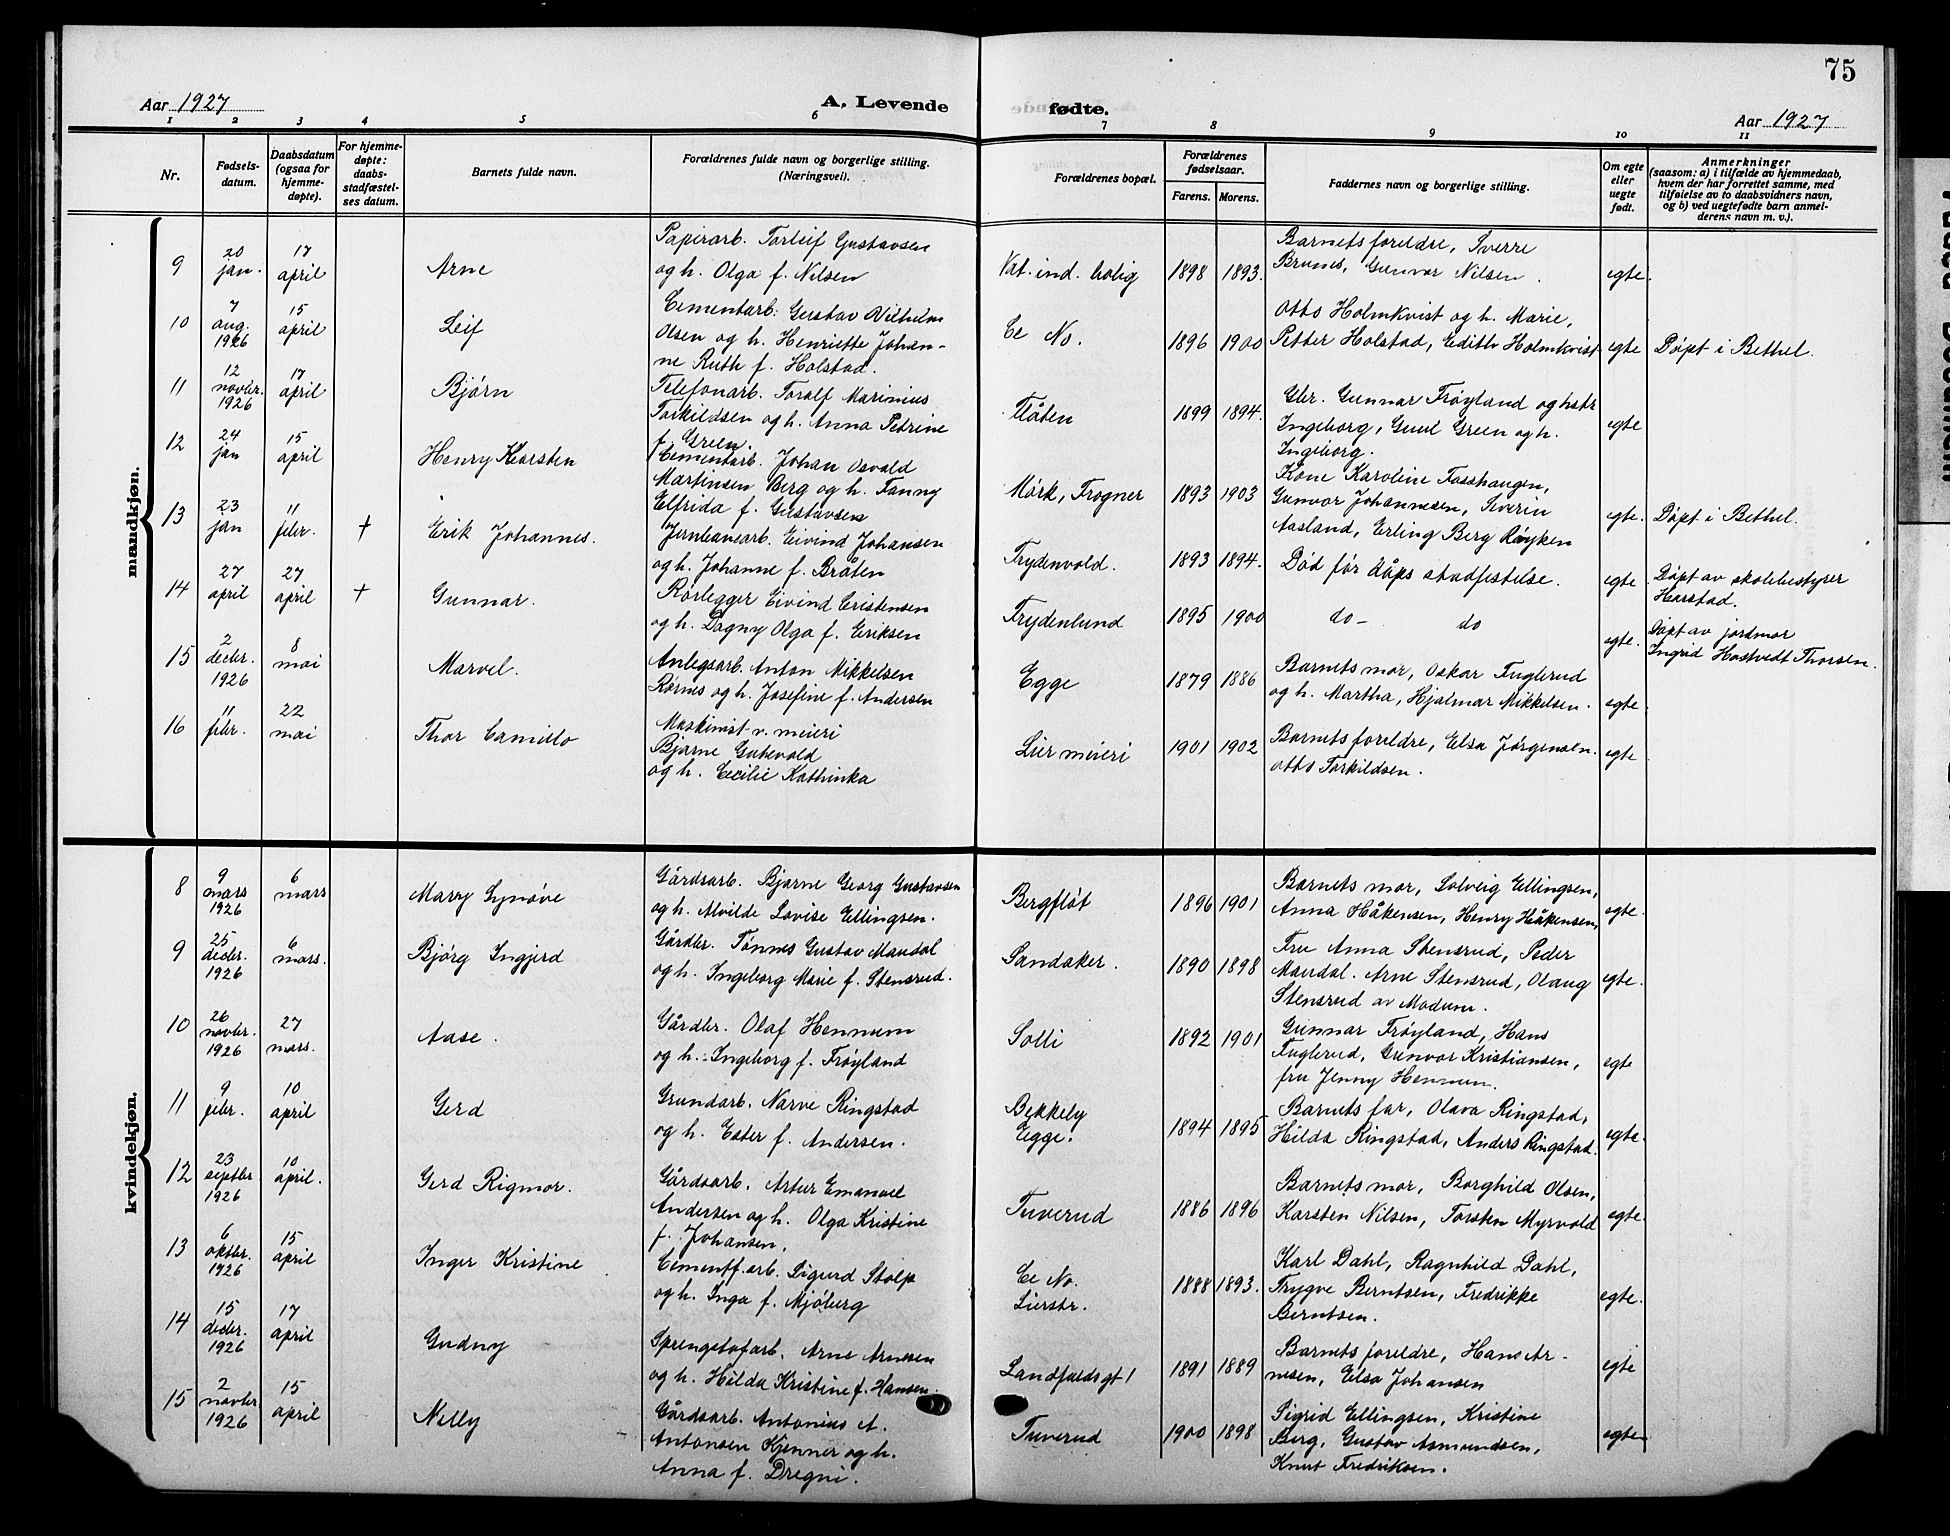 75
Aar 1927
A. Levende fødte.
Aar 1927
1 2 3 4 5 6 7 8 9 10 11
Nr.
Fødsels-
datum.
Daabsdatum
(ogsaa for
hjemme-
døpte).
For hjemme-
døpte:
daabs-
stadfæstel-
ses datum.
Barnets fulde navn.
Forældrenes fulde navn og borgerlige stilling.
(Næringsvei).
Forældrenes bopæl.
Forældrenes
fødselsaar.
Farens. Morens.
Faddernes navn og borgerlige stilling.
Om egte
eller
uegte
født.
Anmerkninger
(saasom: a) i tilfælde av hjemmedaab,
hvem der har forrettet samme, med
tilføielse av to daabsvidners navn,
og b) ved uegtefødte barn anmel-
derens navn m. v.).
mandkjøn.
9
20
jan.
17
april
Arne
Papirarb. Torleif Gustavsen
og h. Olga f. Nilsen
Vat. ind. bolig
1898 1893.
Barnets foreldre, Sverre
Brunes, Gunvor Nilsen.
egte.
10
7
aug.
1926
15
april
Leif
Cementarb. Gustav Vilhelm
Olsen og h. Henriette Johan-
ne Ruth f. Holstad.
Ce No.
1896 1900
Otto Holmkvist og h. Marie,
Petter Holstad, Edith Holmkvist
egte
Døpt i Bethel.
11
12
novbr.
1926
17
april
Bjørn
Telefonarb. Toralf Marinius
Torkildsen og h. Anna Petrine
f. Green.
Flåten
1899 1894.
Gbr. Gunnar Frøyland og hstr
Ingeborg, Gust Green og h.
Ingeborg.
egte
12
24
jan
15
april
Henry Karsten
Cementarb. Johan Osvald
Martinsen Berg og h. Fanny
Elfrida f. Gustavsen
Mørk, Frogner
1893 1903
Kone Karoline Fosshaugen,
Gunvor Johannesen, Severin
Aasland, Erling Berg Røyken
egte.
Døpt i Bethel.
13
23
jan
11
febr.
+
Erik Johannes.
Jernbanearb. Eivind Johansen
og h. Johanne f. Bråten
Frydenvold.
1893 1894.
Død før dåps stadfestelse.
egte
Døpt av skolebestyrer
Harstad.
14
27
april
27
april
+
Gunnar.
Rørlegger Eivind Cristensen
og h. Dagny Olga f. Eriksen
Frydenlund
1895 1900
do- do
egte.
Døpt av jordmor
Ingrid Hostvedt Thorsen.
15
2
decbr.
1926
8
mai
Marvel.
Anlegsarb. Anton Mikkelsen
Rørnes og h. Josefine f. Andersen
Egge
1879 1886
Barnets mor, Oskar Fuglerud
og h. Martha, Hjalmar Mikkelsen.
egte.
16
11
febr.
22
mai
Thor Camillo
Maskinist v. meieri
Bjarne Gutevold
og h. Cecilie Kathinka
Lier meieri
1901 1902
Barnets foreldre, Elsa Jørgensen.
Otto Torkildsen.
egte
kvindekjøn.
8
9
mars
1926
6
mars
Mary Synøve
Gårdsarb. Bjarne Georg Gustavsen
og h. Alvilde Lovise Ellingsen.
Bergfløt
1896 1901
Barnets mor, Solveig Ellingsen,
Anna Håkensen, Henry Håkensen,
egte.
9
25
decbr.
1926
6
mars.
Bjørg Ingjerd
Gårdbr. Tønnes Gustav Mandal
og h. Ingeborg Marie f. Stensrud.
Sandaker.
1890 1898
Fru Anna Stensrud, Peder
Mandal. Arne Stensrud, Olaug
Stensrud av Modum.
egte.
10
26
novbr.
1926
27
mars.
Aase.
Gårdbr. Olaf Hennum
og h. Ingeborg f. Frøyland
Solli
1892 1901
Gunnar Frøyland, Hans
Fuglerud, Gunvor Kristiansen,
fru Jenny Hennum.
egte
11
9
febr.
10
april
Gerd
Grundarb. Narve Ringstad
og h. Ester f. Andersen.
Bekkely
Egge.
1894 1895
Barnets far, Olava Ringstad,
Hilda Ringstad, Anders Ringstad.
egte.
12
23
septbr
1926
10
april.
Gerd Rigmor.
Gårdsarb. Artur Emanuel
Andersen og h. Olga Kristine
f. Johansen.
Tuverud
1886 1896
Barnets mor, Borghild Olsen,
Karsten Nilsen, Torsten Myrvold
egte.
13
6
oktbr.
1926
15
april
Inger Kristine
Cementf.arb. Sigurd Stolp
og h. Inga f. Mjøberg
Ce No.
Lierstr.
1888 1893.
Karl Dahl, Ragnhild Dahl,
Trygve Berntsen, Fredrikke
Berntsen.
egte.
14
15
decbr.
1926
17
april
Gudny
Sprengstofarb. Arne Arnesen
og h. Hilda Kristine f. Hansen.
Landfaldsgt 1
1891 1889
Barnets foreldre, Hans Ar-
nesen, Elsa Johansen
egte
15
2
novbr
1926
15
april
Nelly
Gårdsarb. Antonius A.
Antonsen Kjenner og h.
Anna f. Dregni.
Tuverud
1900 1898
Sigrid Ellingsen, Kristine
Berg, Gustav Asmundsen,
Knut Fredriksen.
egte